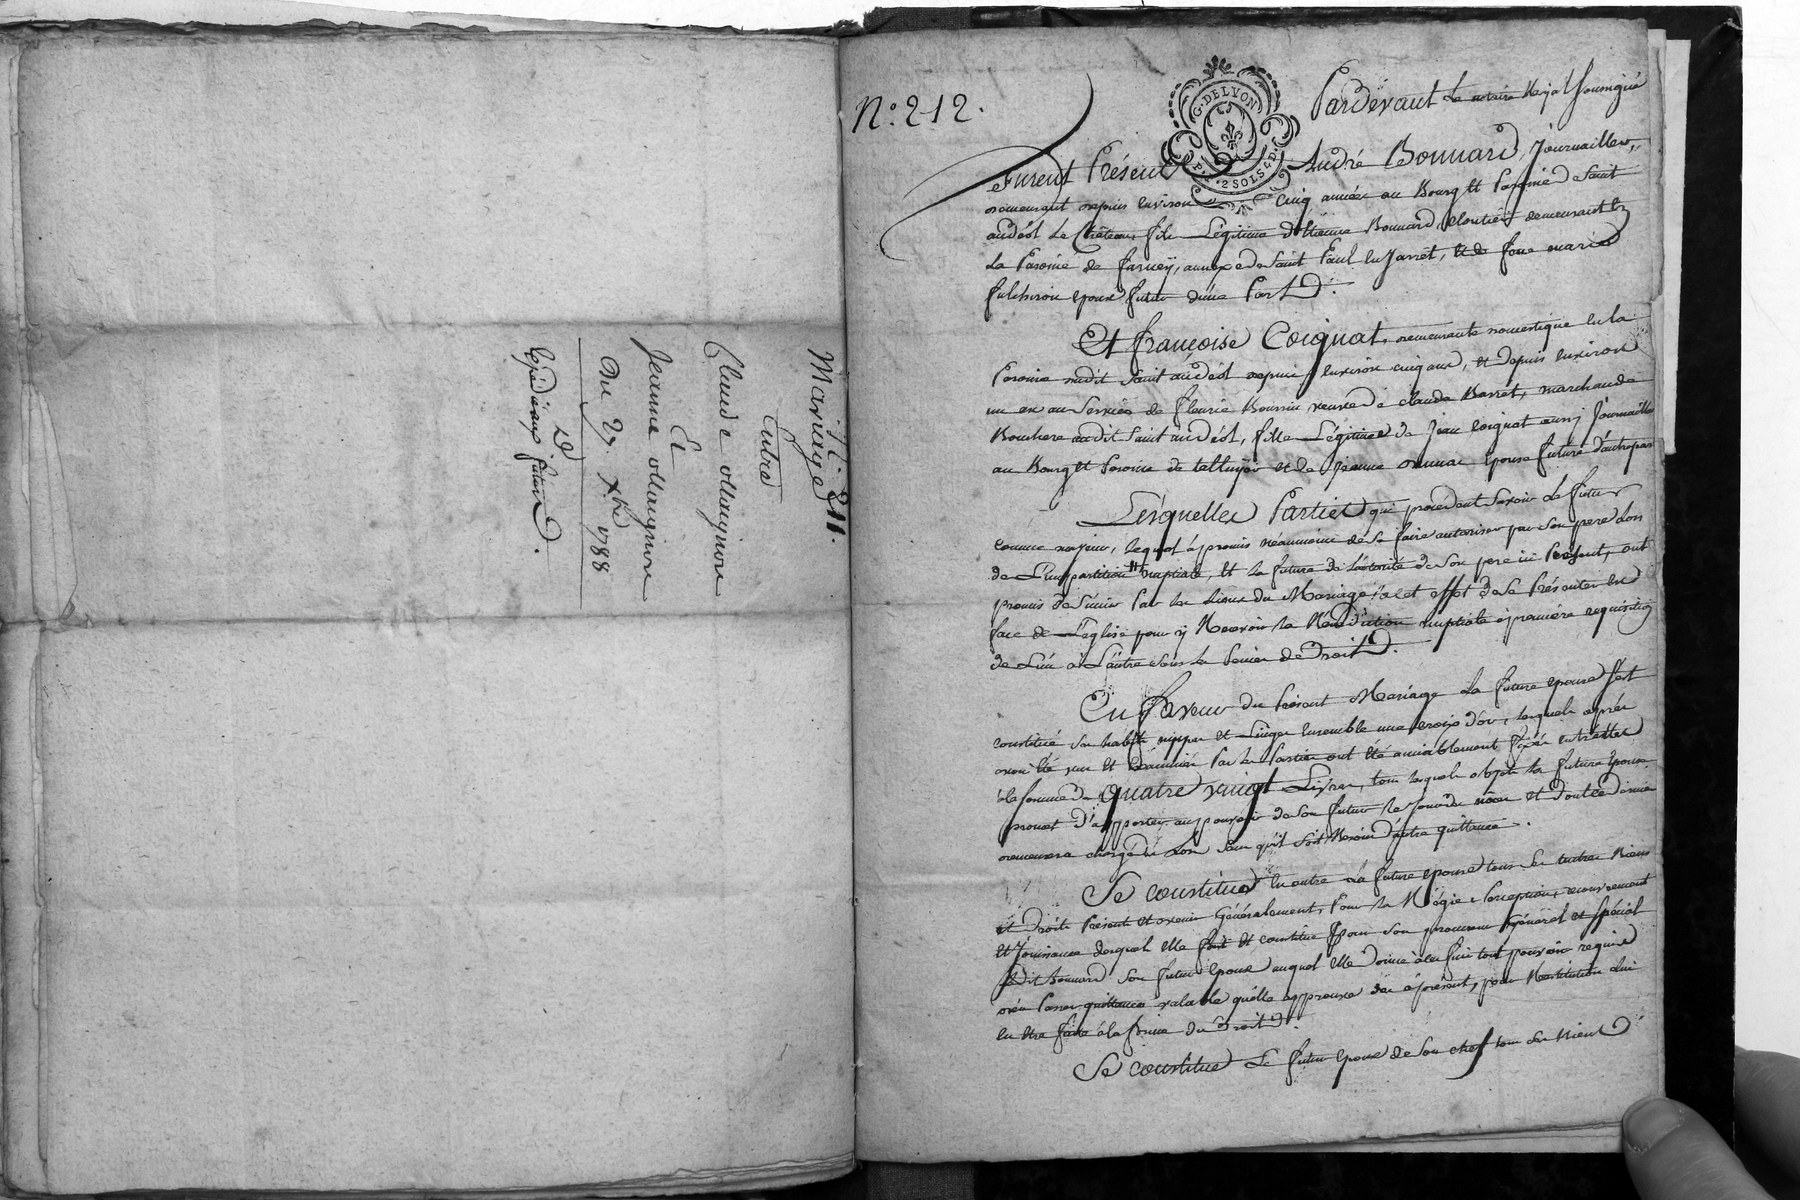 N° 211.
Mariage
Entre
Claude
Et
Jeanne
Du 27. Xbre 1788
Expédié aux futurs.
N°. 212.
G. DE LYON
2 SOLS 4 D.
Pardevant Le notaire Royal soussigné
Furent Présens André Bonnard, Journaillier,
demeurant depuis environ cinq années au Bourg et Paroisse de Saint
andéol Le Château, fils Légitime d'Etienne Bonnard, cloutier demeurant en
La Paroisse de farnay, annexe de Saint Paul en Jarret, et de feue marie
fulchiron epoux futur d'une Part.
Et françoise Coignat, demeurante domestique en la
Paroisse dudit Saint andéol depuis environ cinq ans, et depuis environ
un an au Service de fleurie veuve de claude Barret, marchande
Bouchere audit Saint andéol, fille Légitime de Jean Coignat aussi Journaillier
au Bourg et Paroisse de talluyer et de Jeanne Epouse future d'autre part
Lesquelles Parties qui procedent Savoir Le futur
comme majeur, lequel à promis néanmoins de se faire autoriser par son pere Lors
de L'impartition nuptiale, et la future de l'autorité de Son pere ici Present, ont
promis de S'unir Par les Liens du Mariage, à cet effet de se Présenter en
face de L'église pour y Recevoir la Bénédiction nuptiale à première requisition
de L'un à L'autre sous les Peines de Droit.
En faveur du Présent Mariage La future epouse s'est
constitué ses habits nippes et Linges ensemble une croix d'or, lesquels après
avoir été vus et Examinés Par les Parties ont été amiablement fixés entr'elles
à la somme de quatre vingt Livres, tous lesquels objets la future Epouse
promet d'apporter au pouvoir de son futur le jour des nôces et dont ce dernier
demeurera chargé dès Lors sans qu'il soit Besoin d'autre quittance.
Se constitue en outre La future epouse tous ses autres Biens
et Droits Présents et avenir Généralement, Pour la Régie, Perception, recouvrement
et Jouissance desquels elle fait et constitue Pour son procureur Général et spécial
ledit Bonnard son futur epoux auquel elle Donne à ces fins tout pouvoir requis
d'en Passer quittance valable qu'elle approuve dès à présent, pour Restitution lui
en être faite à la forme du Droit.
Se constitue Le futur epoux de son chef tous ses Biens